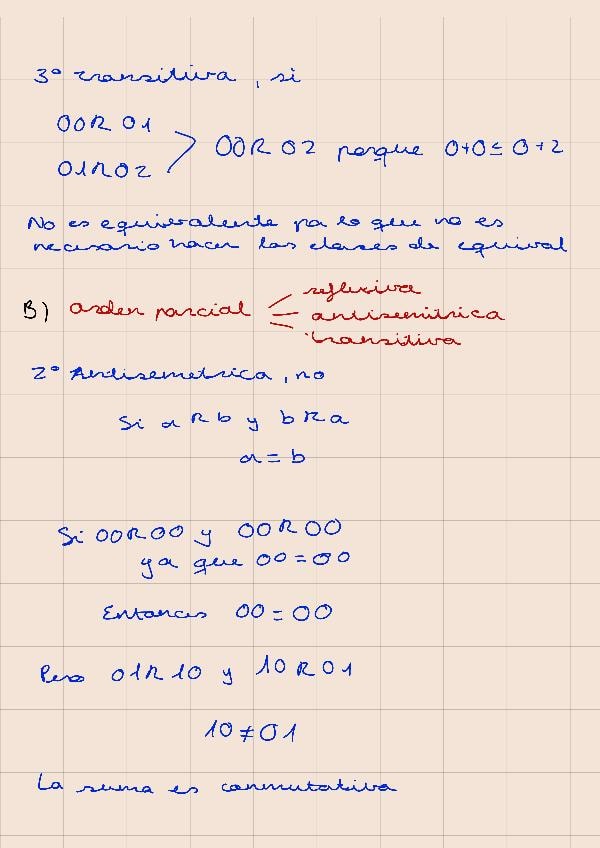 3º transitiva, si
00R 01
01R02
00R 02 porque 0+0≤0+2
No es equivalente pa lo que no es
necesario hacer las clases de equival
B) orden parcial
reflexiva
antisemitrica
transitiva
2º Antisemetrica, no
Si a R b y b R a
a = b
Si 00R00 y 00R00
ya que 00=00
Entonces 00=00
Pero 01R10 y 10R01
10≠01
La suma es conmutativa